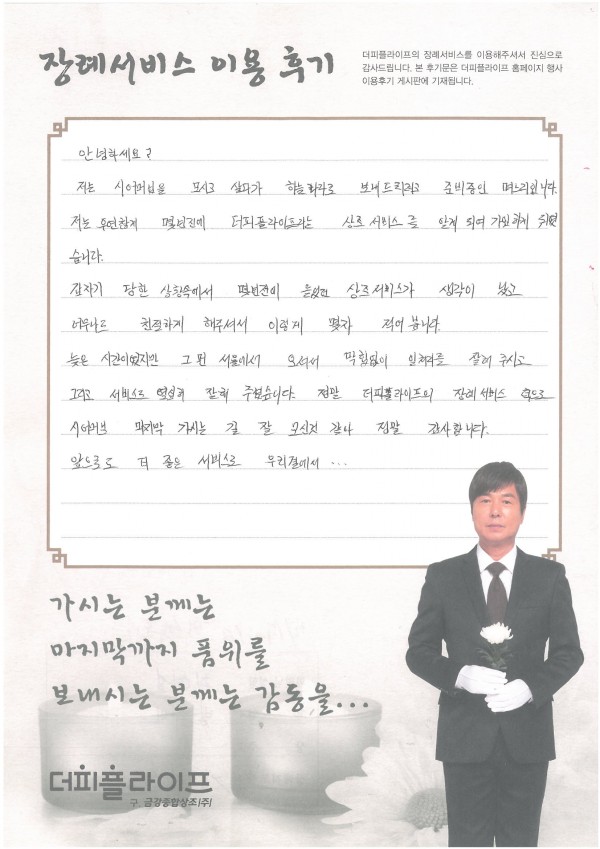 장례서비스 이용 후기
더피플라이프의 장례서비스를 이용해주셔서 진심으로
감사드립니다. 본 후기문은 더피플라이프 홈페이지 행사
이용후기 게시판에 기재됩니다.
안녕하세요?
저는 시어머님을 모시고 살다가 하늘나라로 보내드리려고 준비중인 며느리입니다.
저는 우연찮게 몇번전에 더피플라이프라는 상조 서비스를 알게 되여 가입하게 되였
습니다.
갑자기 당한 상황속에서 몇번전에 들었던 상조서비스가 생각이 났고
너무나도 친절하게 해주셔서 이렇게 몇자 적어 봅니다.
늦은 시간이였지만 그 먼 서울에서 오셔서 막힘없이 일처리를 잘해 주시고
그리고 서비스도 열심히 잘해 주셨습니다. 정말 더피플라이프의 장례서비스 덕으로
시어머님 마지막 가시는 길 잘 모신것 같아 정말 감사합니다.
앞으로도 더 좋은 서비스로 우리곁에서...
가시는 분께는
마지막까지 품위를
보내시는 분께는 감동을...
더피플라이프
구. 금강종합상조(주)